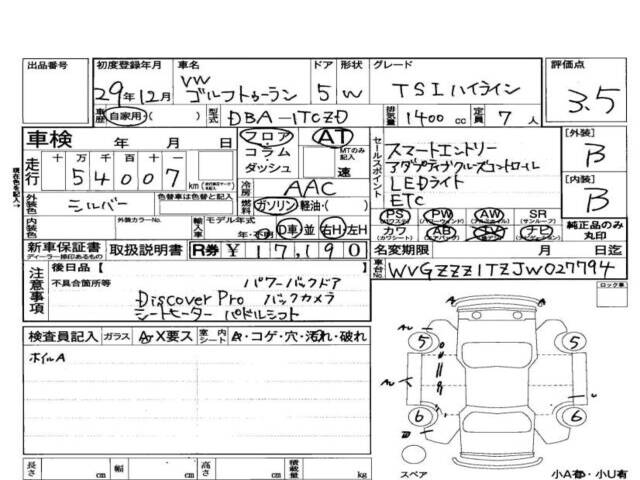 出品番号 初度登録年月 車名 ドア 形状 グレード 評価点
29年12月 VW ゴルフトゥーラン 5 W TSIハイライン 3.5
車歴 自家用・( ) 型式 DBA-1TCZD 排気量 1400 cc 定員 7 人
車検 年 月 日 フロア AT セールスポイント スマートエントリー [外装]
走行 十 万 千 百 十 一 コラム・ダッシュ MTのみ記入 速 アダプティブクルーズコントロール B
54007 km 冷房 AAC LEDライト [内装]
外装色 シルバー 色替車は色替と記入 燃料 ガソリン・軽油・( ) ETC B
現在色を記入→
内装色 外装カラーNo. 輸入車 モデル年式 PS PW AW SR
年・不明 D車・並 右H・左H カワ AB TV ナビ 純正品のみ丸印
新車保証書 取扱説明書 R券 ¥17,190 名変期限 月 日迄
ディーラー捺印あるもの 車台No. WVGZZZ1TZJW027794
注意事項 後日品 [ ] ロック車
不具合箇所等 パワーバックドア
Discover Pro バックカメラ
シートヒーター パドルシフト
検査員記入 ガラス A・X要ス 室内シート A・コゲ・穴・汚れ・破れ
ホイルA
5 5
6 6
スペア 小A有・小U有
長さ cm 幅 cm 高さ cm 積載量 kg